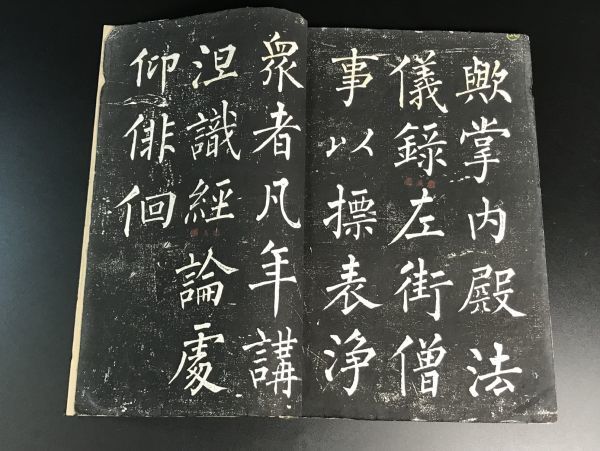 歟掌内殿法
儀錄左街僧
事以摽表浄
衆者凡年講
涅識經論處
仰俳佪